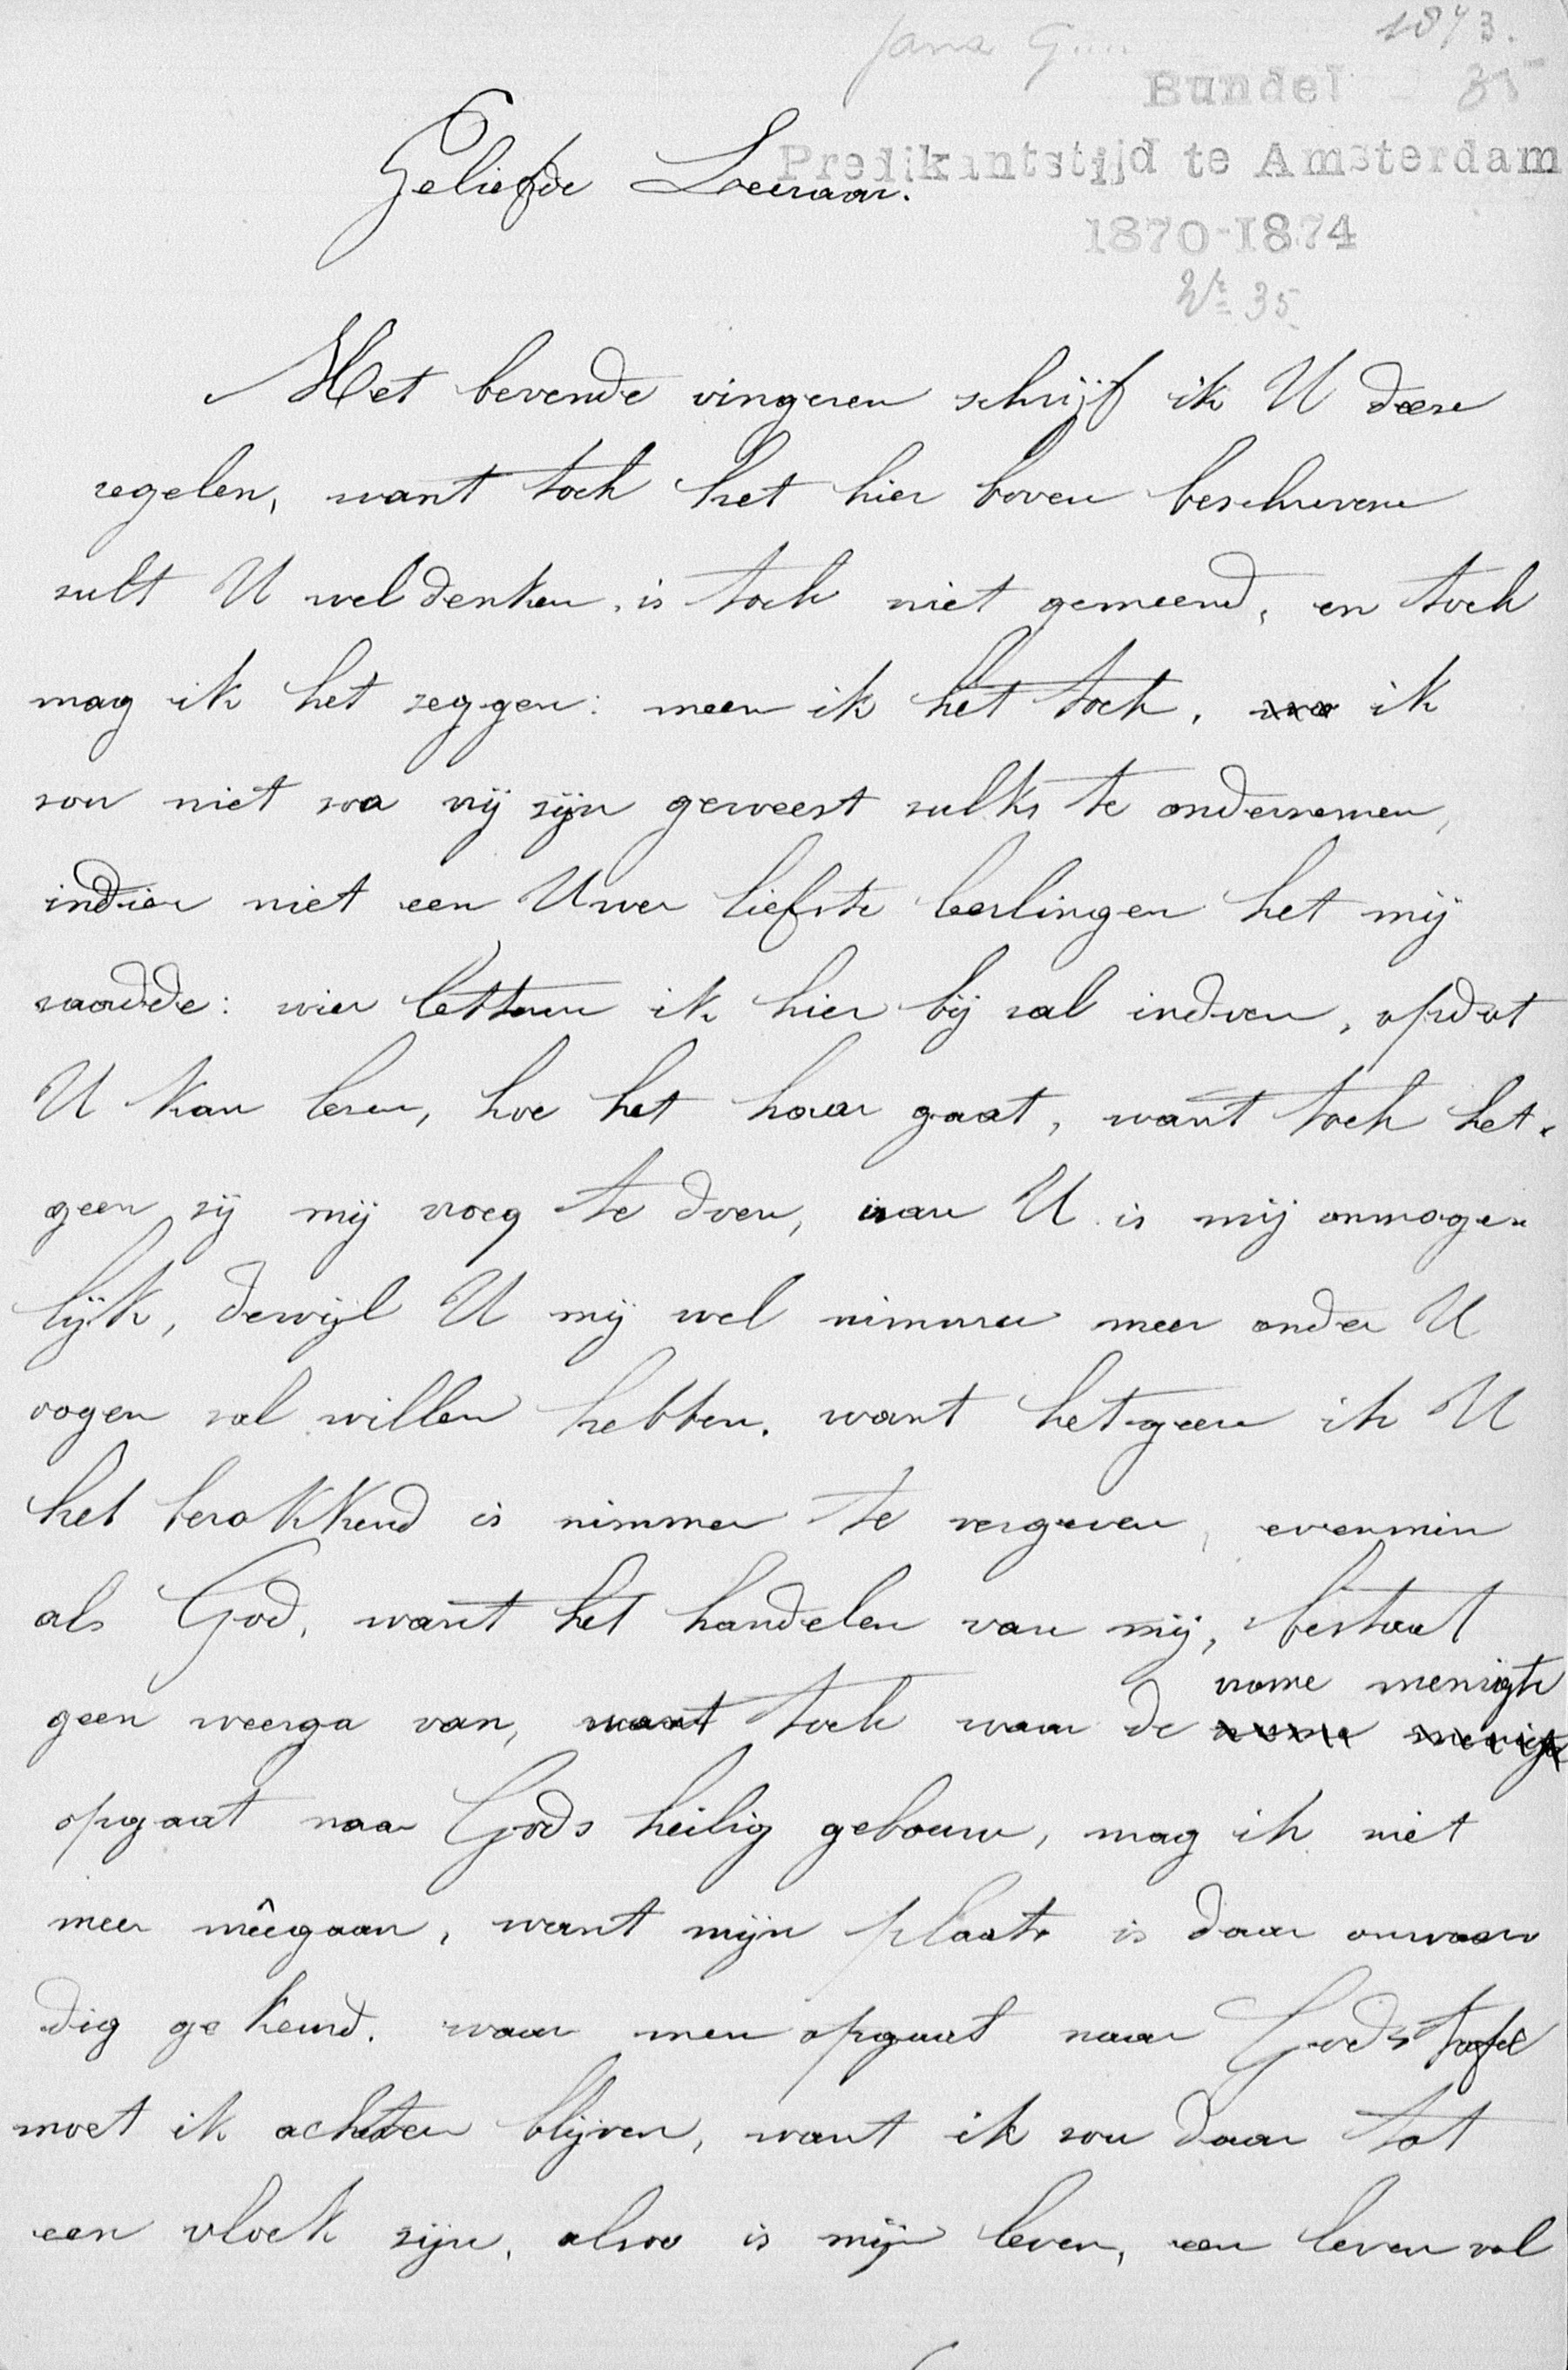 1873.
35
Bundel
Predikantstijd te Amsterdam
1870-1874
No 35
Geliefde Leeraar.
Met bevende vingeren schrijf ik U deze
regelen, want toch het hier boven beschrevene
zult U wel denken, is toch niet gemeend, en toch
mag ik het zeggen: meen ik het toch, ik
zou niet zoo vrij zijn geweest zulks te ondernemen,
indien niet een Uwer liefste leerlingen het mij
raadde: wier letteren ik hier bij zal indoen, opdat
U kan lezen, hoe het haar gaat, want toch het-
geen zij mij vroeg te doen, aan U is mij onmoge-
lijk, dewijl U mij wel nimmer meer onder U
oogen zal willen hebben. want hetgeen ik U
het berokkend is nimmer te vergeven, evenmin
als God, want het handelen van mij, bestaat
geen weerga van, want toch waar de vrome menigte
opgaat naar Gods heilig gebouw, mag ik niet
meer mêegaan, want mijn plaats is daar onwaar
dig gekeurd. waar men opgaat naar Gods tafel
moet ik achter blijven, want ik zou daar tot
een vloek zijn, alzoo is mijn leven, een leven vol